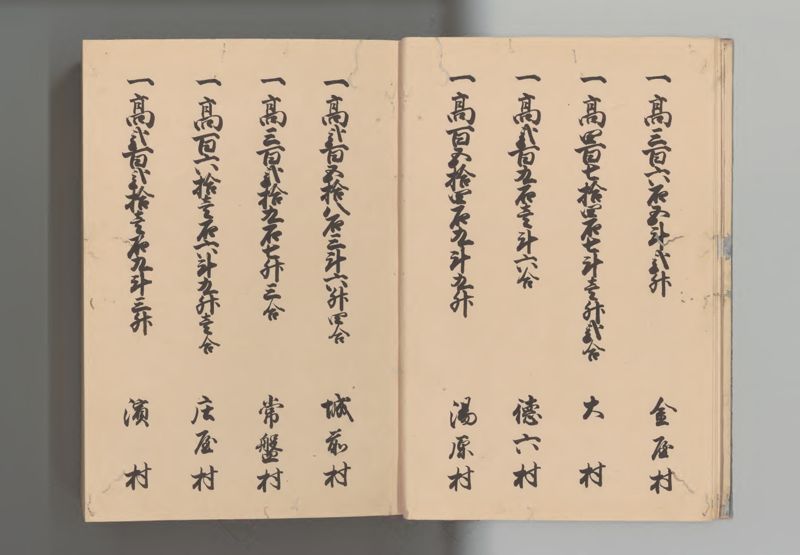 一高三百六石五斗弐升 金屋村
一高四百七拾四石七斗壱升弐合 大村
一高弐百九石壱斗六合 徳六村
一高百五拾四石九斗九升 湯原村
一高弐百五拾八石三斗六升四合 城前村
一高三百弐拾九石七升三合 常盤村
一高百六拾壱石六斗九升壱合 庄屋村
一高弐百弐拾壱石九斗三升 濱村